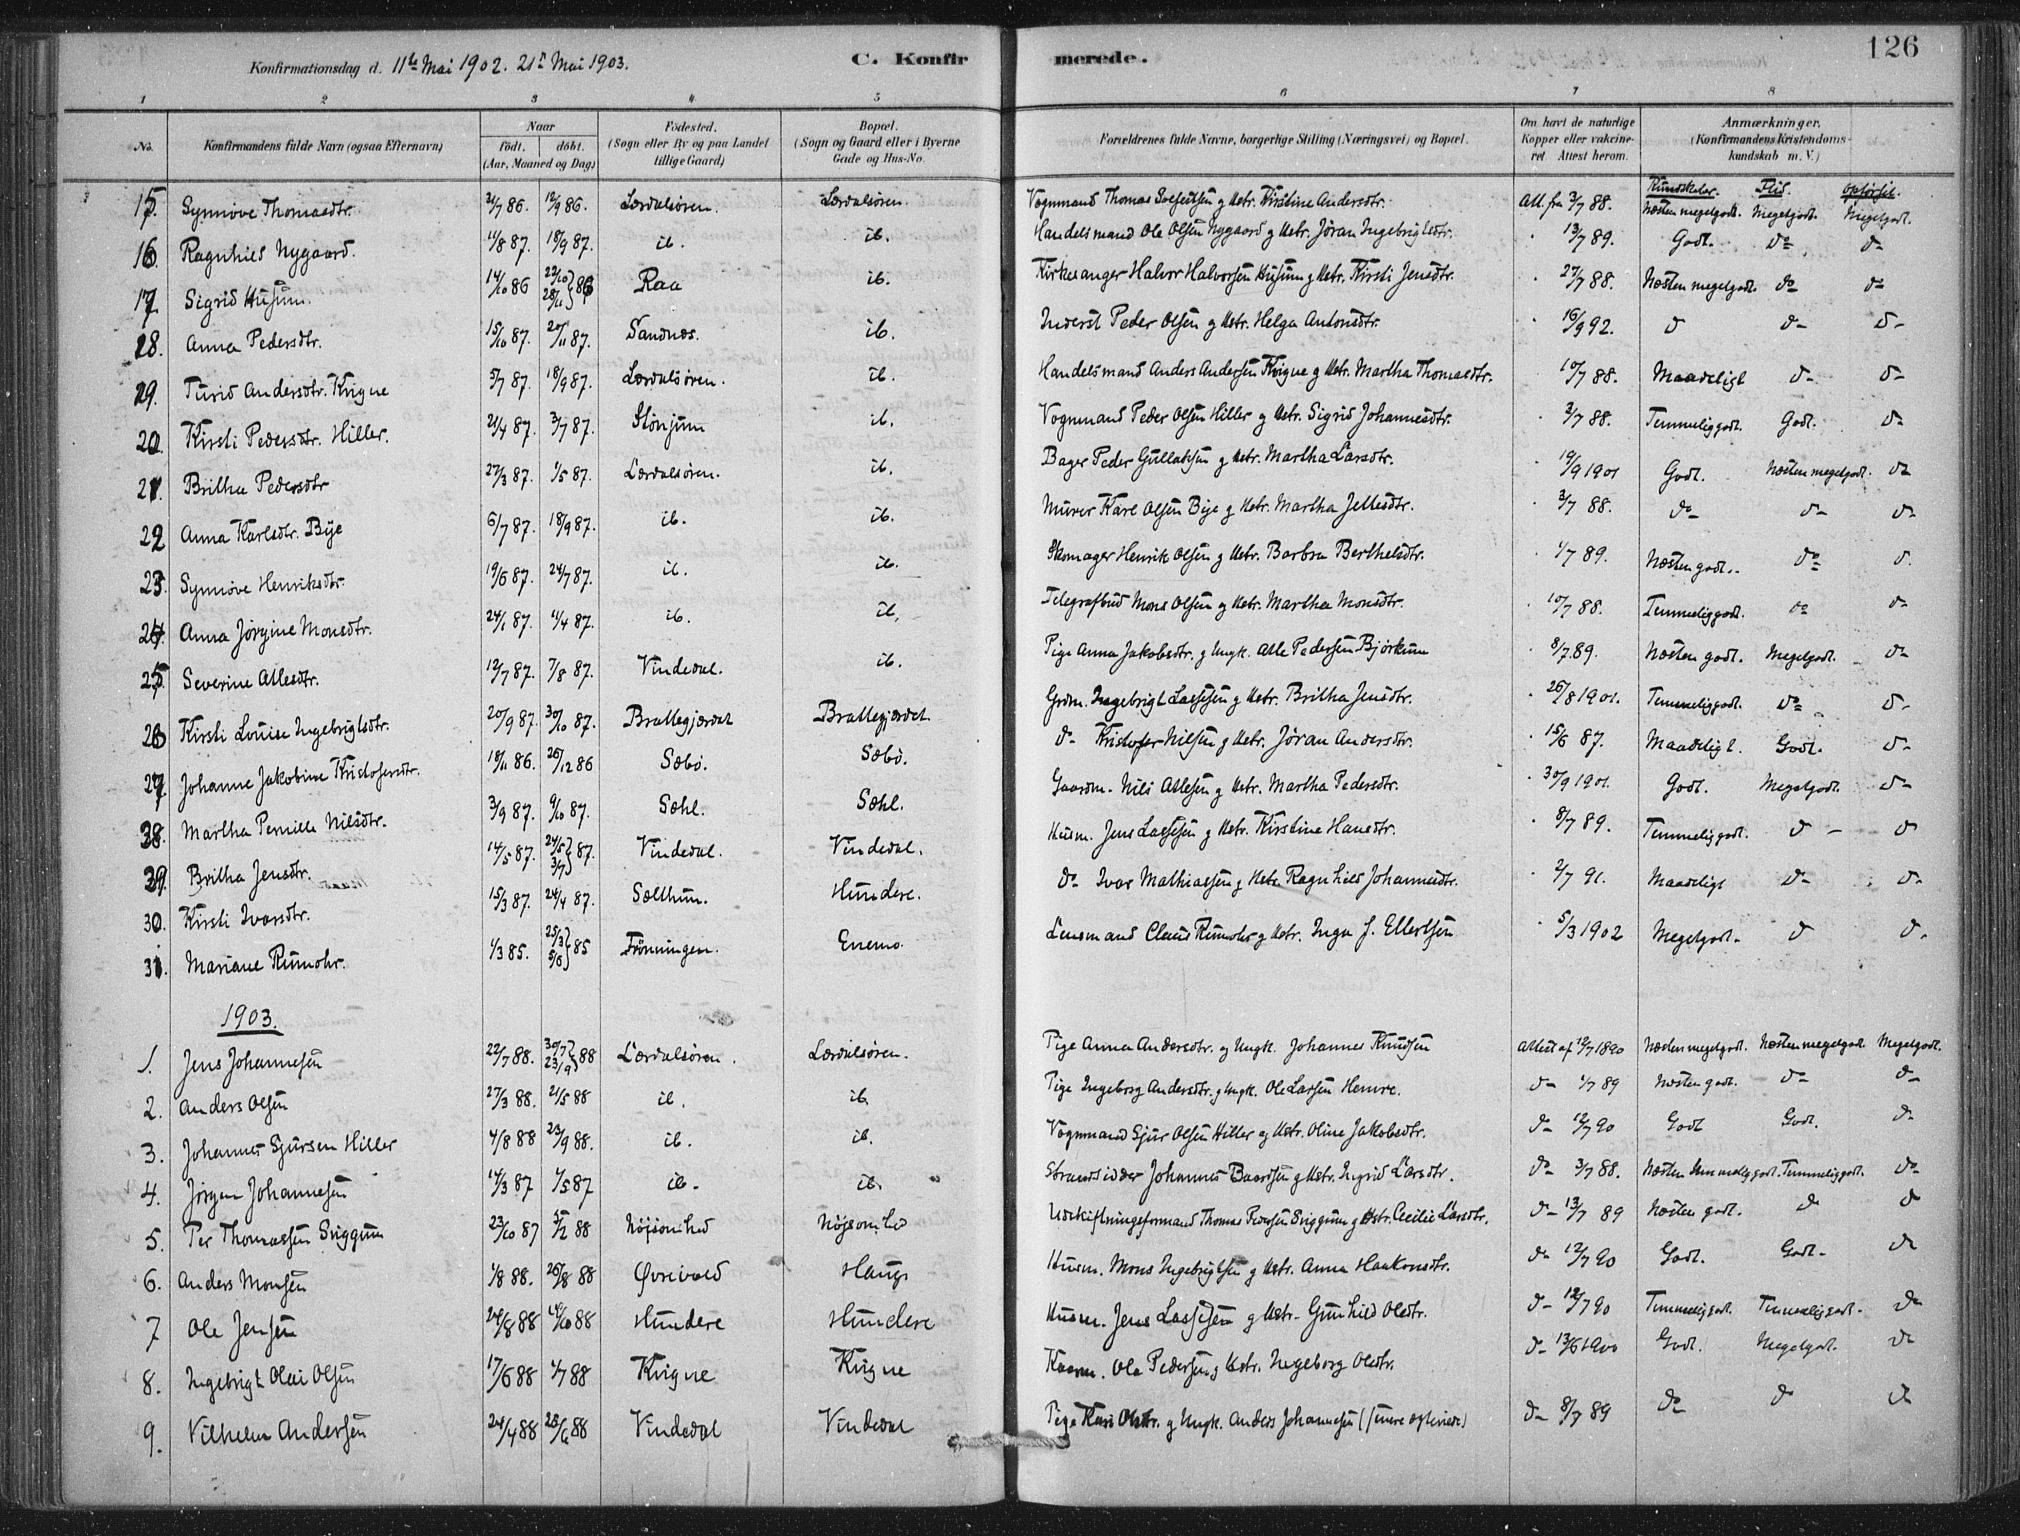 126
Konfirmationsdag d. 11te Mai 1902. 21de Mai 1903. C. Konfirmerede.
1 2 3 4 5 6 7 8
No. Konfirmandens fulde Navn (ogsaa Efternavn) Naar födt. döbt. (Aar, Maaned og Dag) Födested. (Sogn eller By og paa Landet tillige Gaard) Bopæl. (Sogn og Gaard eller i Byerne Gade og Hus-No. Forældrenes fulde Navne, borgerlige Stilling (Næringsvei) og Bopæl. Om havt de naturlige Kopper eller vakcineret Attest herom. Anmærkninger. (Konfirmandens Kristendomskundskab m. V.)
Kundskaber. Flid. Opførsel.
15. Synnøve Thomasdtr. 21/7 86. 12/9 86. Lærdalsören. Lærdalsören. Vognmand Thomas g Hstr. Kirstine Andersdtr. Att. fra 3/7 88. Næsten megetgodt. Megetgodt. Megetgodt.
16. Ragnhild Nygaard. 11/8 87. 18/9 87. ib. ib. Handelsmand Ole Olsen Nygaard g Hstr. Jøran Ingebrigtsdtr. 13/7 89. Godt. do d-
17. Sigrid Husum. 14/10 86 22/10 28/11 } 86 Raa ib. Kirkesanger Halvor Halvorsen Husum g Hstr. Kirsti Jensdtr. 27/7 88. Næsten megetgodt. do d-
18. Anna Pedersdtr. 15/10 87. 20/11 87. Sandnes. ib. Inderst Peder Olsen g Hstr. Helga Antonsdtr. 16/9 92. d d- d-
19. Turid Andersdtr. Kvigne 5/7 87. 18/9 87. Lærdalsören. ib. Handelsmand Anders Andersen Kvigne g Hstr. Martha Thomasdtr. 10/7 88. Maadeligt d- d-
20. Kirsti Pedersdtr. Hiller. 21/4 87. 3/7 87. Stönjum ib. Vognmand Peder Olsen Hiller g Hstr. Sigrid Johannesdtr. 3/7 88. Temmeliggodt. Godt. d-
21. Britha Pedersdtr 27/3 87. 1/5 87. Lærdalsören. ib. Bager Peder Gullaksen g Hstr. Martha Larsdtr. 19/9 1901 Godt. Næsten megetgodt. d-
22 Anna Karlsdtr. Bye 6/7 87. 18/9 87. ib. ib. Murer Karl Olsen Bye g Hstr. Martha Jellesdtr. 3/7 88. do d- d-
23. Synnøve Henriksdtr. 19/6 87. 24/7 87. ib. ib. Skomager Henrik Olsen g Hstr. Barbra Berthelsdtr. 1/7 89. Næsten godt. do d.
24. Anna Jørgine Monsdtr. 24/1 87. 11/4 87. ib. ib. Telegrafbud Mons Olsen g Hstr. Martha Monsdtr. 10/7 88. Temmeliggodt. do d-
25. Severine Atlesdtr. 12/7 87. 7/8 87. Vindedal. ib. Pige Anna Jakobsdtr. g Ungk. Atle Pedersen Björkum 8/7 89. Næsten godt. Megetgodt. d-
26 Kirsti Louise Ingebrigtsdtr. 20/9 87. 30/10 87. Brattegjærdet Brattegjærdet. Grdm. Ingebrigt Lassesen g Hstr. Britha Jensdtr. 26/8 1901. Temmeliggodt. do d-
27. Johanne Jakobine Kristofersdtr. 18/11 86. 26/12 86 Sæbö. Sæbö. d- Kristofer Nilsen g Hstr. Jøran Andersdtr. 15/6 87. Maadeligt. Godt. d-
28. Martha Pernille Nilsdtr. 3/9 87. 9/10 87. Sæhl. Sæhl. Gaardm. Nils Atlesen g Hstr. Martha Pedersdtr. 30/9 1901. Godt. Megetgodt. d-
29. Britha Jensdtr. 14/5 87. 24/5 3/7 } 87. Vindedal. Vindedal. Husm. Jens Lassesen g Hstr. Kirstine Hansdtr. 8/7 89. Temmeliggodt. d - d
30. Kirsti Ivarsdtr. 15/3 87. 24/4 87. Sælthun. Hundere. do Ivar Mathiassen g Hstr. Ragnhild Johannesdtr. 2/7 91. Maadeligt d- d-
31. Mariane Rumohr. 1/3 85. 25/3 5/6 } 85 Frönningen. Enemo. Lensmand Claus Rumohr g Hstr. Inga J. Ellertsen 5/3 1902 Megetgodt. d d.
1903.
1. Jens Johannesen 22/7 88. 30/7 23/9 } 88 Lærdalsören. Lærdalsören. Pige Anna Andersdtr. og Ungk. Johannes Knudsen Attest af 12/7 1890 Næsten megetgodt. Næsten megetgodt. Megetgodt.
2. Anders Olsen 27/3 88. 21/5 88 ib. ib. Pige Ingeborg Andersdtr. g Ungk. Ole Larsen Hemre. d- 1/7 89 Næsten godt. d- d-
3. Johannes Sjursen Hiller 4/8 88 23/9 88. ib. ib. Vognmand Sjur Olsen Hiller og Hstr. Oline Jakobsdtr. d- 12/7 90 Godt Godt. d-
4. Jörgen Johannesen 14/3 87 1/5 87 ib. ib. Strandsidder Johannes Baardsen g Hstr. Ingrid Larsdtr. do 3/7 88. Næsten temmeliggodt. Temmeliggodt. do
5. Per Thomassen Sviggum 23/10 87 5/2 88 Nöjsomhed Nöjsomhed Udskiftningsformand Thomas Pedersen Sviggum g Hstr. Cecilie Larsdtr. d- 13/7 89 Næsten godt. d d
6. Anders Monsen 1/8 88. 26/8 88 Øvrevold Haug Husm. Mons Ingebrigtsen g Hstr. Anna Haakonsdtr. d- 12/7 90 Godt. Godt. d-
7 Ole Jensen 24/8 88 14/10 88 Hundere Hundere Husm. Jens Lassesen g Hstr. Gunhild Olsdtr. d- 12/7 90 Temmeliggodt. Temmeliggodt. do
8. Ingebrigt Olai Olsen 17/6 88 1/7 88 Kvigne Kvigne Kaarm. Ole Pedersen g Hstr. Ingeborg Olsdtr. d- 13/6 1900 Godt. Megetgodt. d
9. Vilhelm Andersen 24/4 88 23/6 88 Vindedal Vindedal Pige Kari Olsdtr. g Ungk. Anders Johannesen (senere egteviede) d- 8/7 89 do d d-